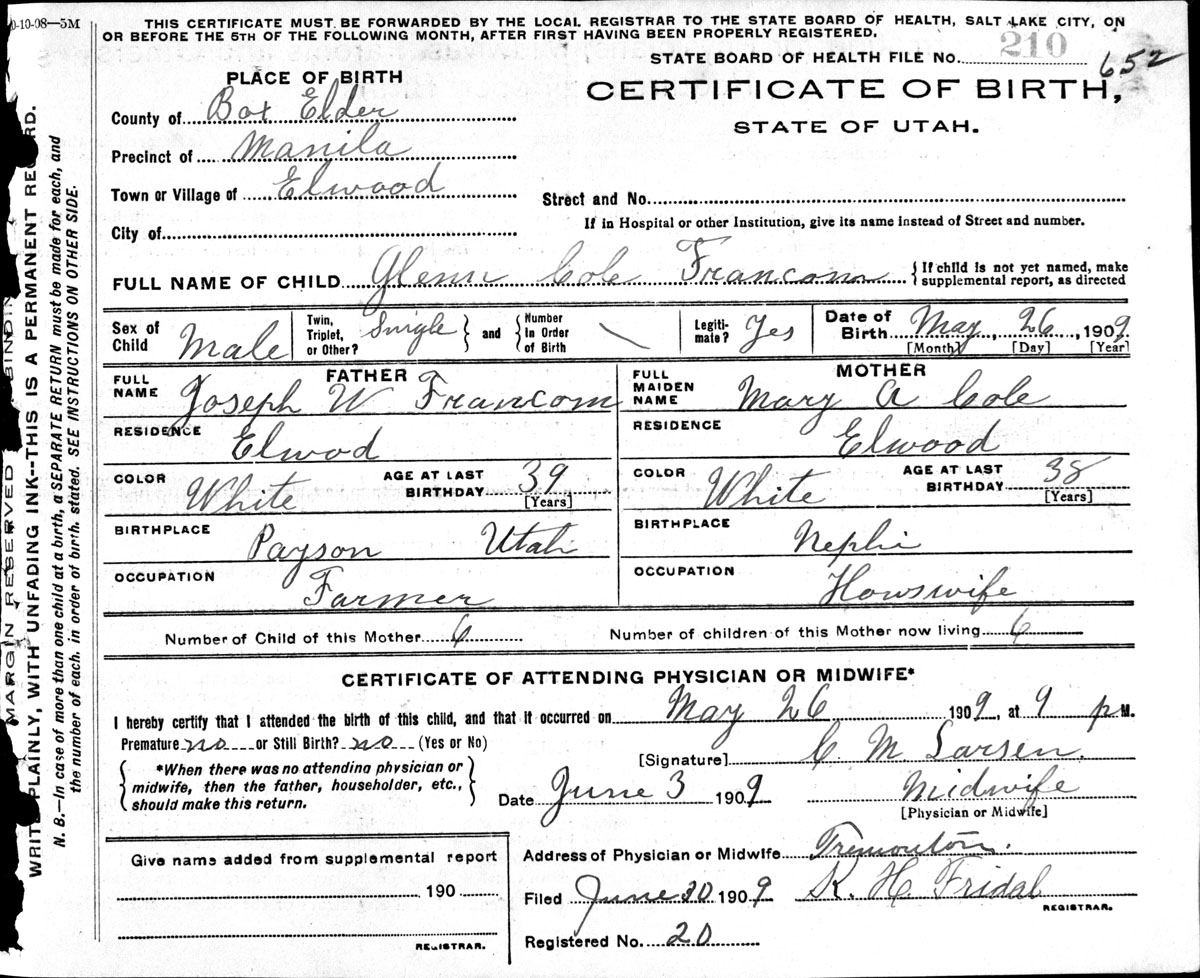 0-10-08—5M
THIS CERTIFICATE MUST BE FORWARDED BY THE LOCAL REGISTRAR TO THE STATE BOARD OF HEALTH, SALT LAKE CITY, ON
OR BEFORE THE 5TH OF THE FOLLOWING MONTH, AFTER FIRST HAVING BEEN PROPERLY REGISTERED.
STATE BOARD OF HEALTH FILE No. 210 652
PLACE OF BIRTH
CERTIFICATE OF BIRTH,
STATE OF UTAH.
County of Box Elder
Precinct of Manila
Town or Village of Elwood
Street and No.
If in Hospital or other Institution, give its name instead of Street and number.
City of
FULL NAME OF CHILD Glenn Cole Francom {If child is not yet named, make
supplemental report, as directed
Sex of Child Male
Twin, Triplet, or Other? Single } and { Number In Order of Birth \
Legiti-mate? Yes
Date of Birth May 26, 1909
[Month] [Day] [Year]
FATHER
FULL NAME Joseph W Francom
RESIDENCE Elwod
COLOR White AGE AT LAST BIRTHDAY 39
[Years]
BIRTHPLACE Payson Utah
OCCUPATION Farmer
MOTHER
FULL MAIDEN NAME Mary A Cole
RESIDENCE Elwood
COLOR White AGE AT LAST BIRTHDAY 38
[Years]
BIRTHPLACE Nephi
OCCUPATION Howswife
Number of Child of this Mother 6 Number of children of this Mother now living 6
CERTIFICATE OF ATTENDING PHYSICIAN OR MIDWIFE*
I hereby certify that I attended the birth of this child, and that it occurred on May 26 1909, at 9 p M.
Premature no or Still Birth? no (Yes or No)
*When there was no attending physician or
midwife, then the father, householder, etc.,
should make this return.
[Signature] C. M. Larsen.
Date June 3 1909 Midwife
[Physician or Midwife]
Give name added from supplemental report
190
REGISTRAR.
Address of Physician or Midwife Tremonton.
Filed June 30 1909 K. H. Fridal
REGISTRAR.
Registered No. 20
MARGIN RESERVED BINDIN
WRITE PLAINLY, WITH UNFADING INK--THIS IS A PERMANENT RECORD.
N. B.—In case of more than one child at a birth, a SEPARATE RETURN must be made for each, and
the number of each, in order of birth, stated. SEE INSTRUCTIONS ON OTHER SIDE.